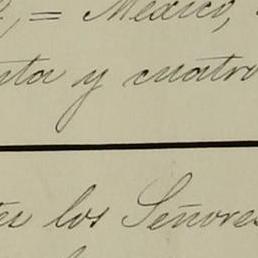 = Mexico,
nta y cuatro
tes los Señores